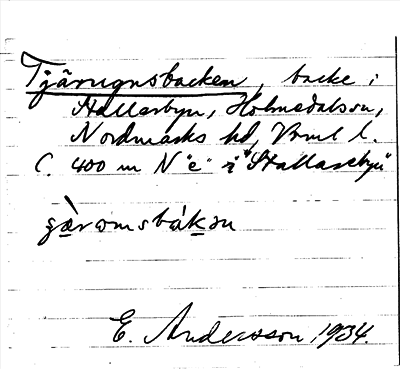 Tjärugnsbacken, backe i
Stallarbyn, Holmedals sn,
Nordmarks hd, Vrml l.
C. 400 m N "e" i "Stallarebyn"
E. Andersson, 1934.